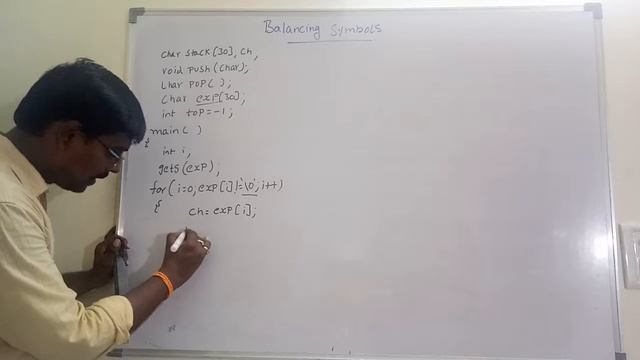 Balancing Symbols
char stack[30], ch,
void push(char);
char pop( );
char exp[30];
int top=-1;
main( )
{
int i,
gets(exp);
for(i=0,exp[i]!='\0',i++)
{ ch=exp[i];